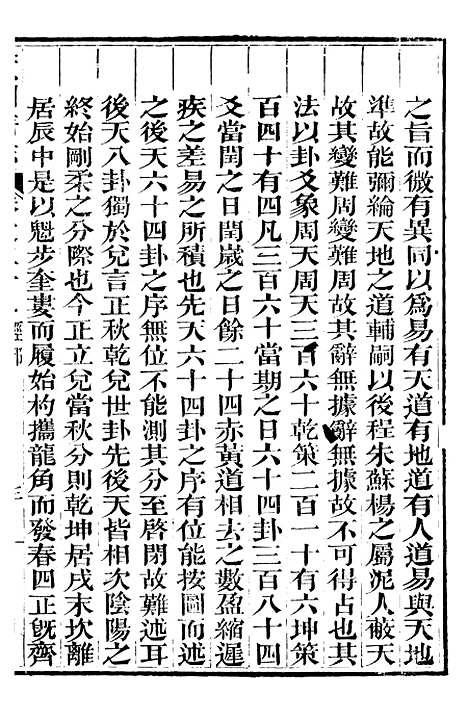 之旨而微有異同以爲易有天道有地道有人道易與天地
準故能彌綸天地之道輔嗣以後程朱蘇楊之屬泥人蔽天
故其變難周變難周故其辭無據辭無據故不可得占也其
法以卦爻象周天周天三百六十乾策二百一十有六坤策
百四十有四凡三百六十當期之日六十四卦三百八十四
爻當閏之日閏歲之日餘二十四赤黃道相去之數盈縮遲
疾之差易之所積也先天六十四卦之序有位能按圖而述
之後天六十四卦之序無位不能測其分至啓閉故難述耳
後天八卦獨於兌言正秋乾兌世卦先後天皆相次陰陽之
終始剛柔之分際也今正立兌當秋分則乾坤居戌末坎離
居辰中是以魁步奎婁而履始杓攜龍角而發春四正旣齊
經部